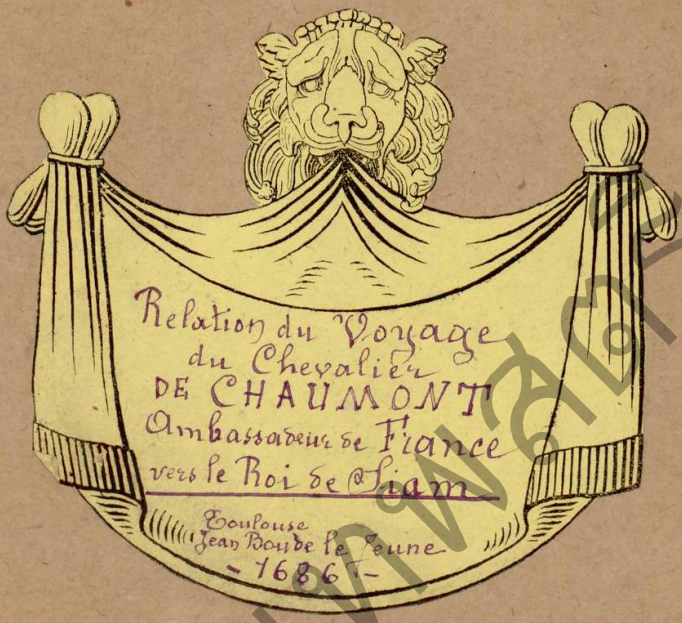 Relation du Voyage
du Chevalier
DE CHAUMONT
Ambassadeur de France
vers le Roi de Siam
Toulouse
Jean Boude le Jeune
- 1686 -